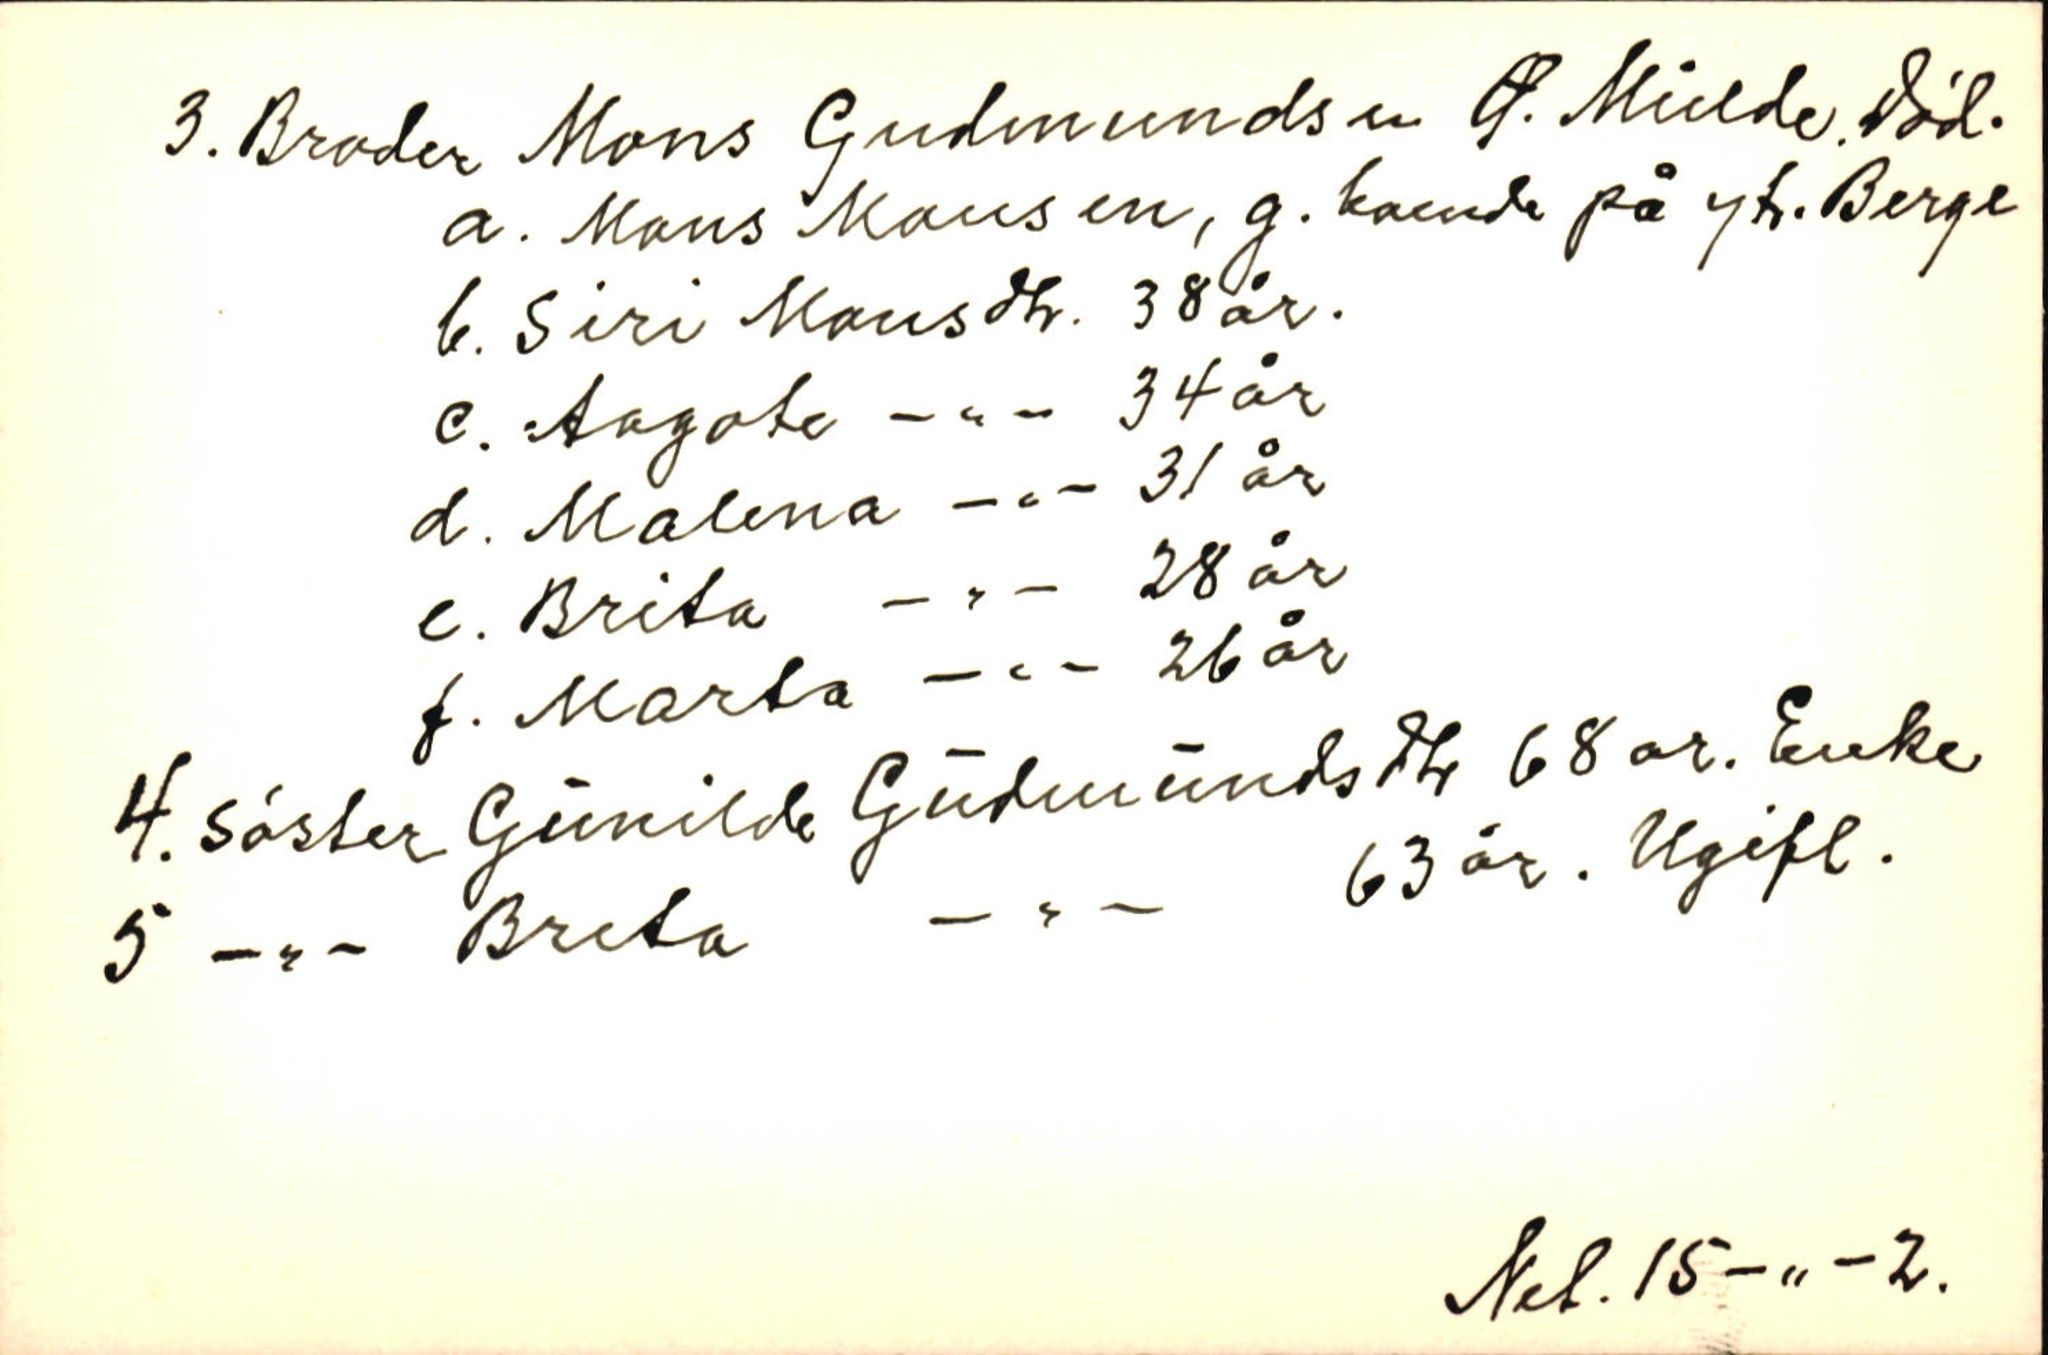 3. Broder Mons Gudmundsen Ø. Milde. Död.
a. Mons Monsen, g. boende på ytr. Berge
b. Siri Monsdtr. 38 år.
c. Aagote -"- 34 år
d. Malena -"- 31 år
e. Brita -"- 28 år
f. Marta -"- 26 år
4. Söster Günilde Güdmündsdtr 68 ar. Enke
5 -"- Brita -"- 63 år. Ugift.
Net. 15-"-2.